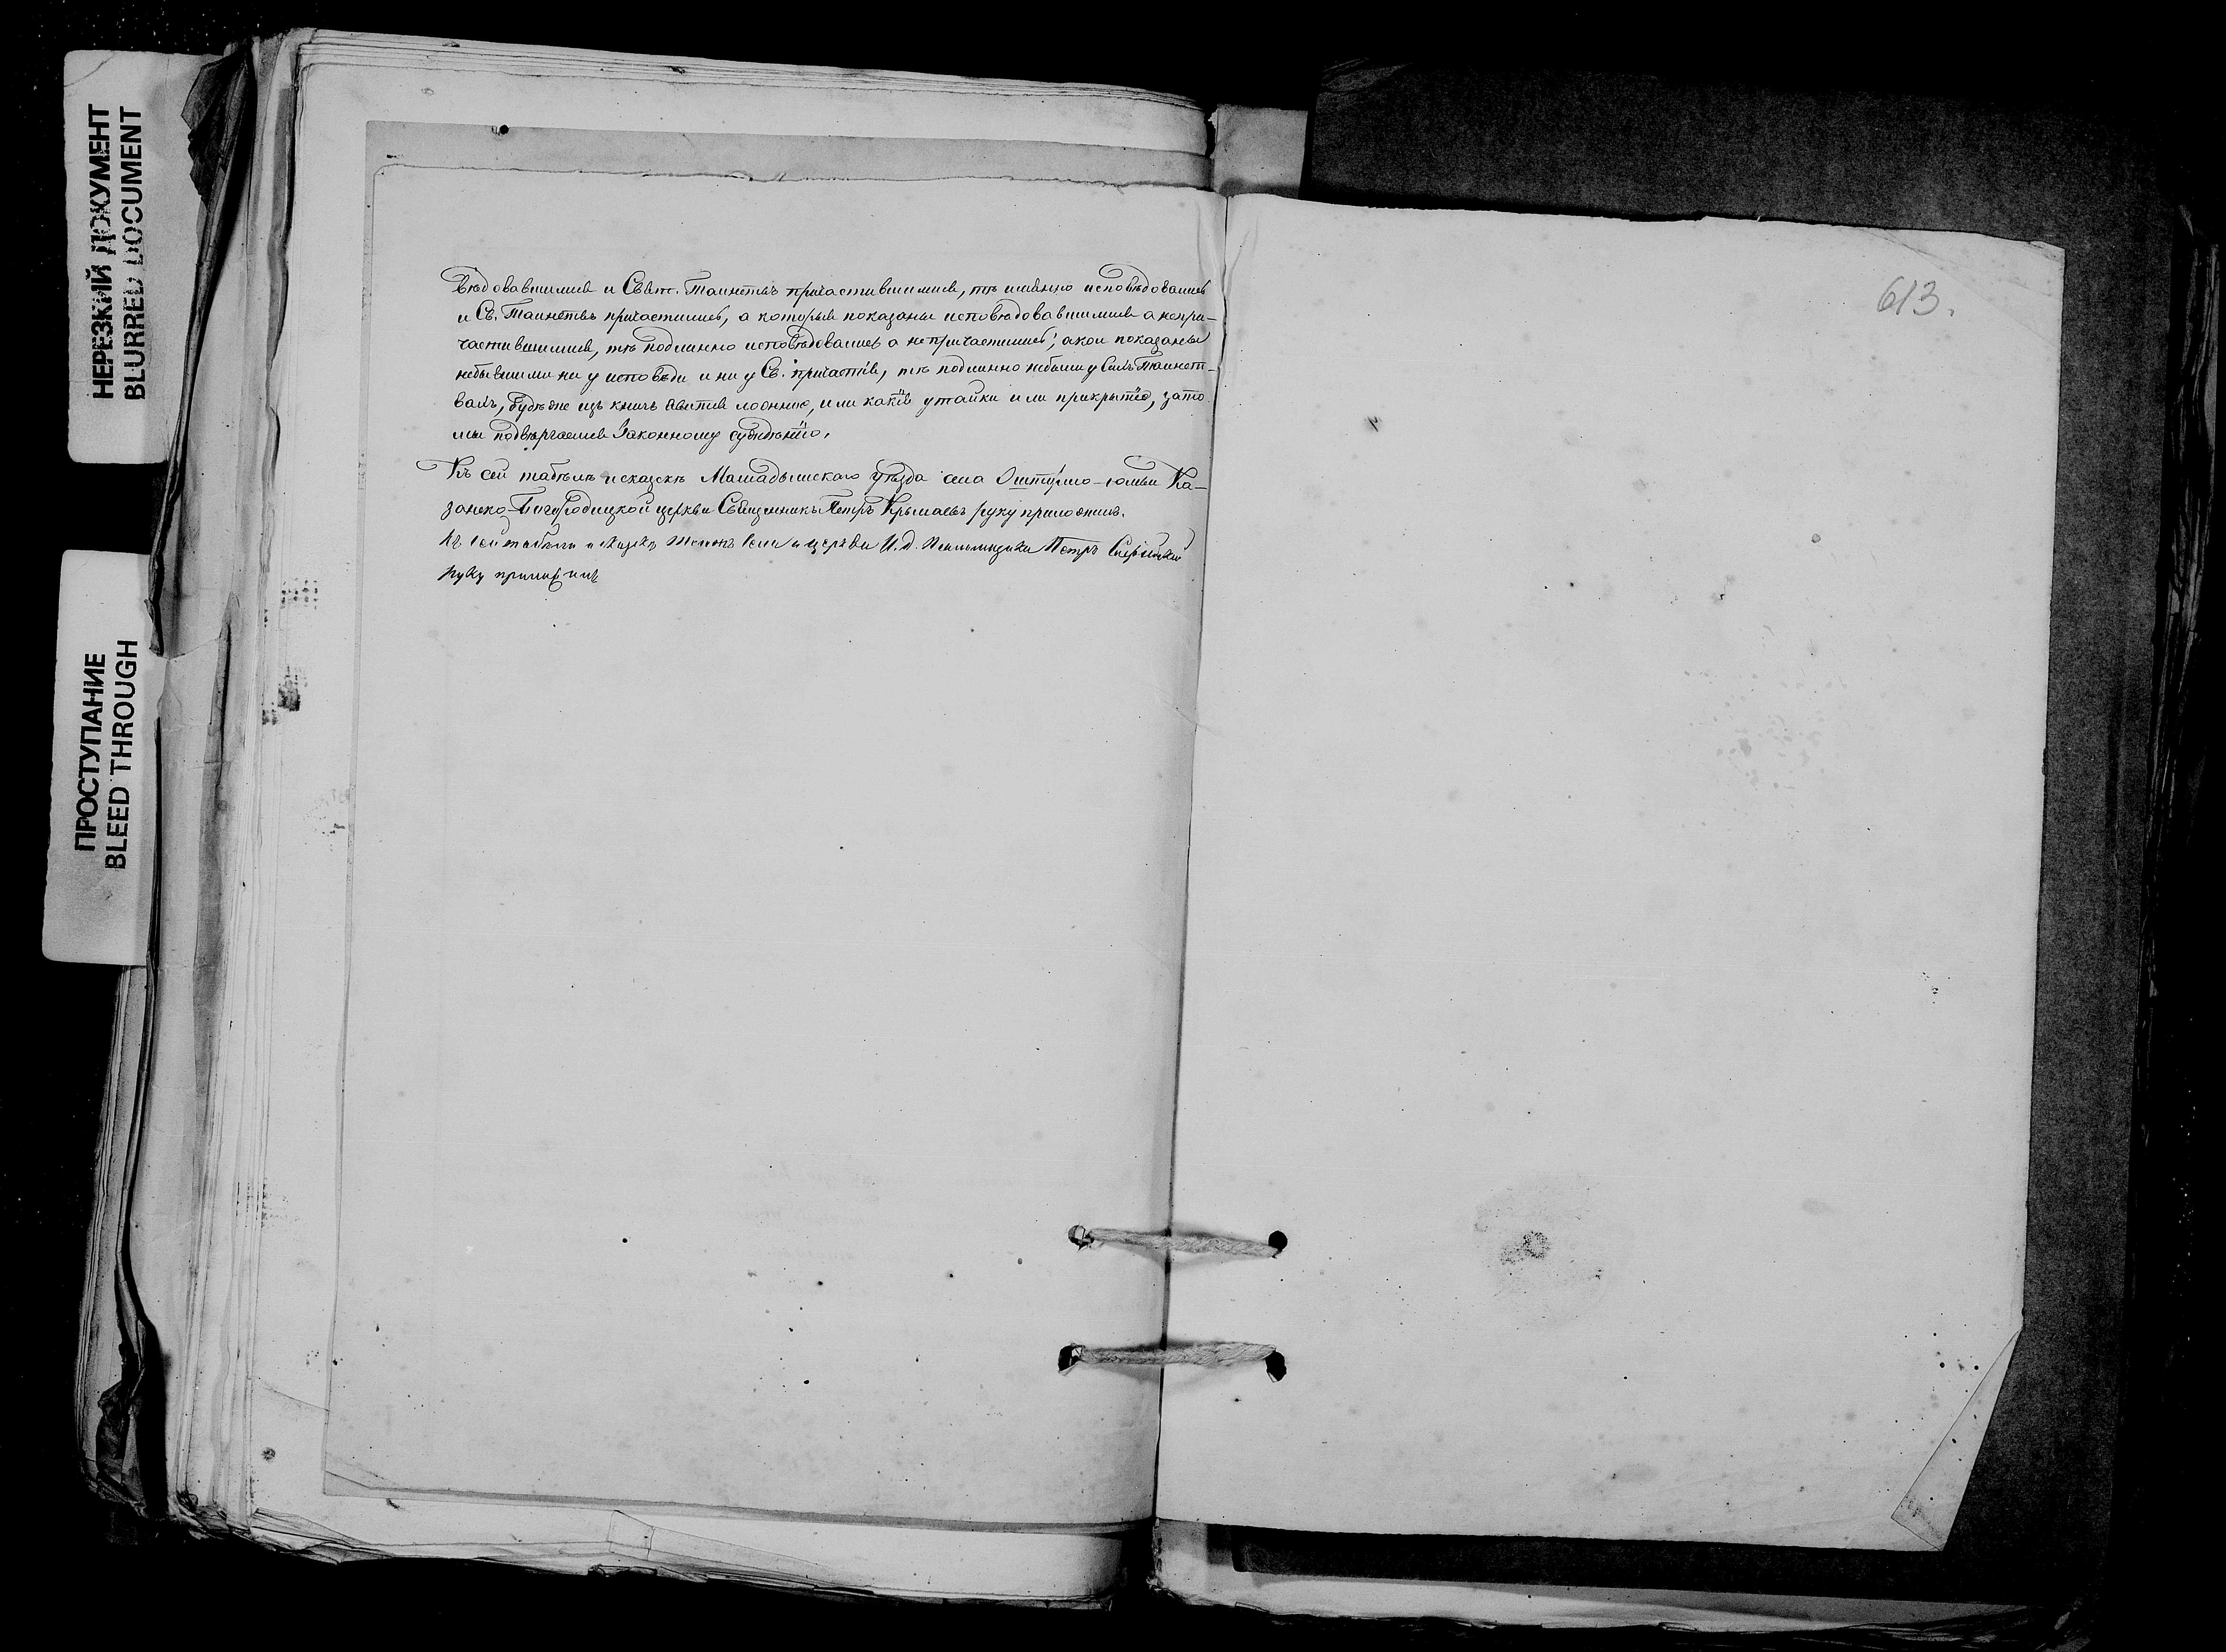 НЕРЕЗКИЙ ДОКУМЕНТ
BLURRED DOCUMENT
ПРОСТУПАНИЕ
BLEED THROUGH
вѣдовавшимися и Свят. Таинствъ причастившимися, тѣ именно исповѣдовались
и Св. Таинствъ причастились, а которые показаны исповѣдовавшимися а непри-
частившимися, тѣ подлинно исповѣдовались а не причастились; а кои показаны
небывшими ни у исповѣди и ни у Св. причастія, тѣ подлинно небыли у сихъ Таинст-
вахъ, будѣ же изъ кихъ явится ложное, или какія утайки или прикрытіе, за то
мы подвѣргаемся Законному сужденію.
Къ сей табѣлѣ и сказкѣ Малмыжскаго уѣзда села Ошторма-юмьи Ка-
занско-Богородицкой церкви Священникъ Петръ Крылаевъ руку приложилъ.
Къ сей табели и сказкѣ тѣхъ села и церкви И. д. Псаломщика Петръ
руку приложилъ
613.